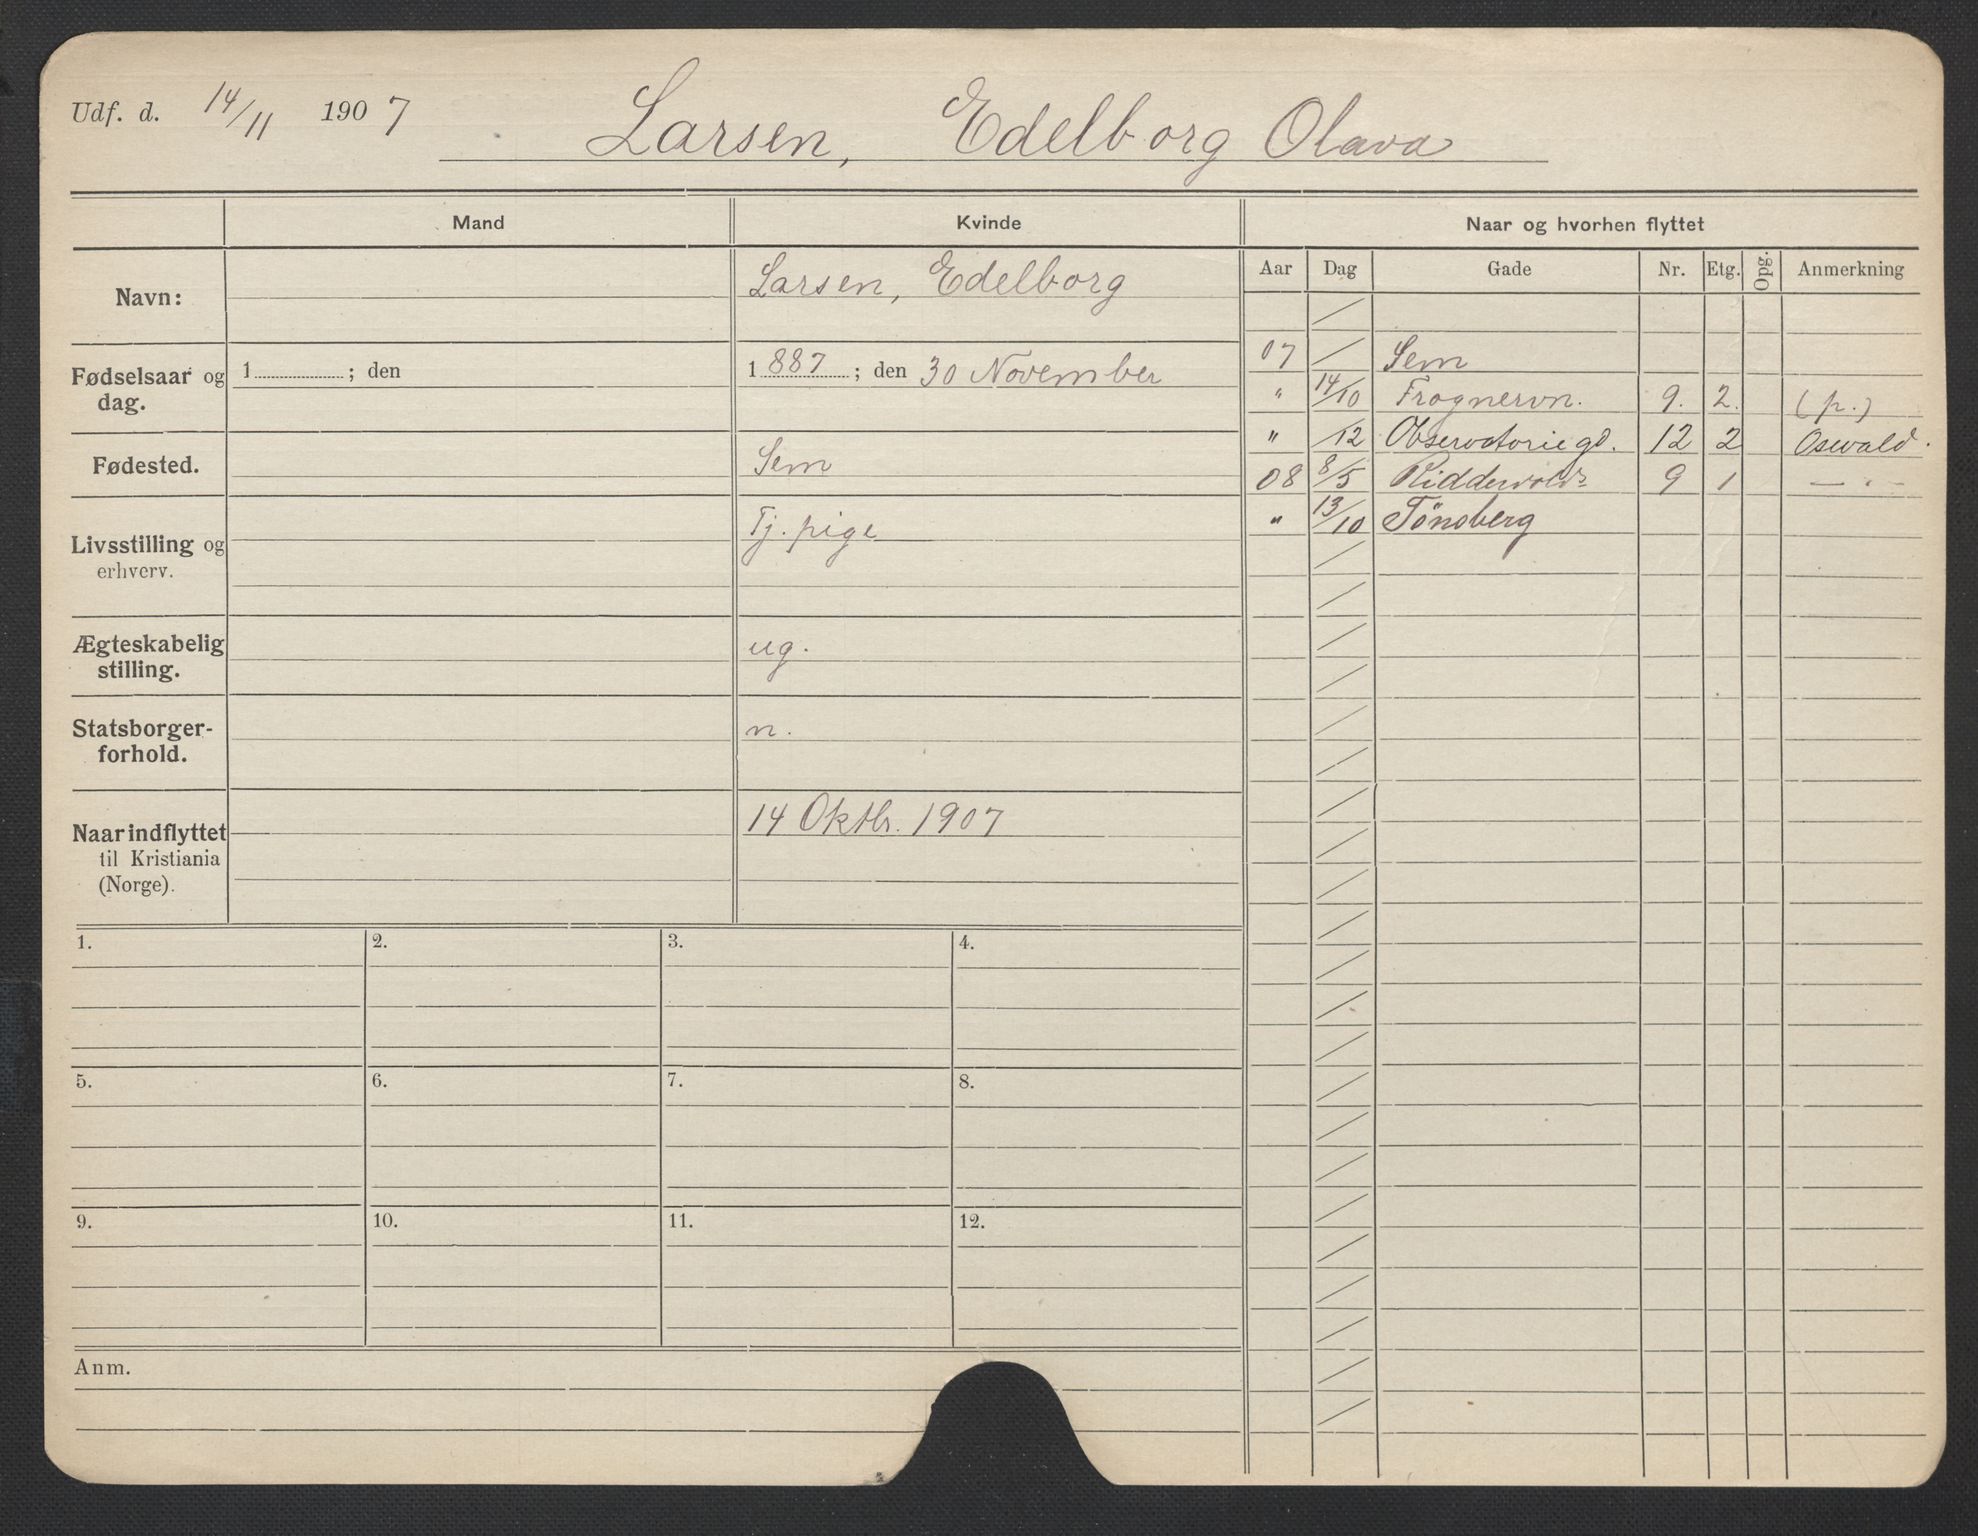 Udf. d. 14/11 1907
Larsen, Edelborg Olava
Mand
Kvinde
Naar og hvorhen flyttet
Navn:
Larsen, Edelborg
Fødselsaar og dag.
1 ; den
1887 ; den 30 November
Fødested.
Sem
Livsstilling og erhverv.
Tj. pige
Ægteskabelig stilling.
ug.
Statsborger-
forhold.
n.
Naar indflyttet
til Kristiania
(Norge).
14 Oktbr. 1907
Aar Dag Gade Nr. Etg. Opg. Anmerkning
07 / Sem
" 14/10 Frognervn. 9. 2. (p.)
" /12 Observatoriegd. 12 2 Oswald.
08 8/5 Ridderwolds 9 1 — " —
" 13/10 Tönsberg
1. 2. 3. 4.
5. 6. 7. 8.
9. 10. 11. 12.
Anm.